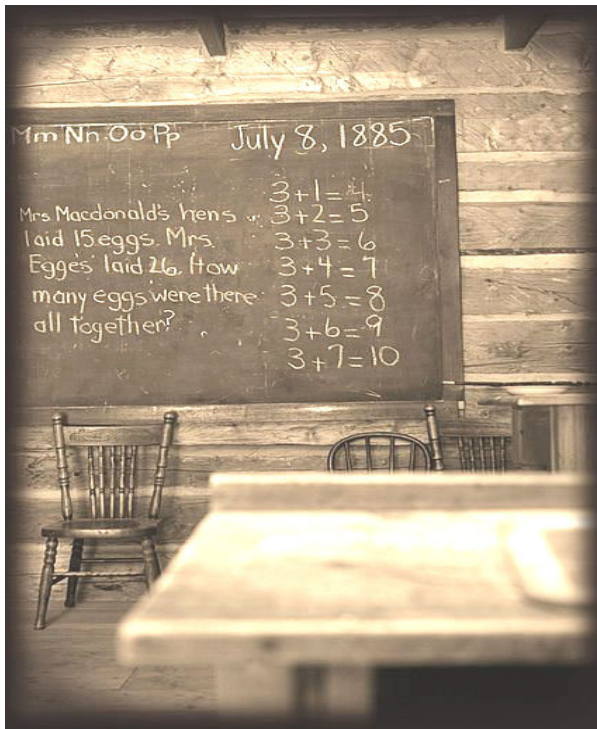 Mm Nn Oo Pp
July 8, 1885
Mrs Macdonald's hens
laid 15 eggs. Mrs.
Egge's laid 26. How
many eggs were there
all together?
3+1=4
3+2=5
3+3=6
3+4=7
3+5=8
3+6=9
3+7=10